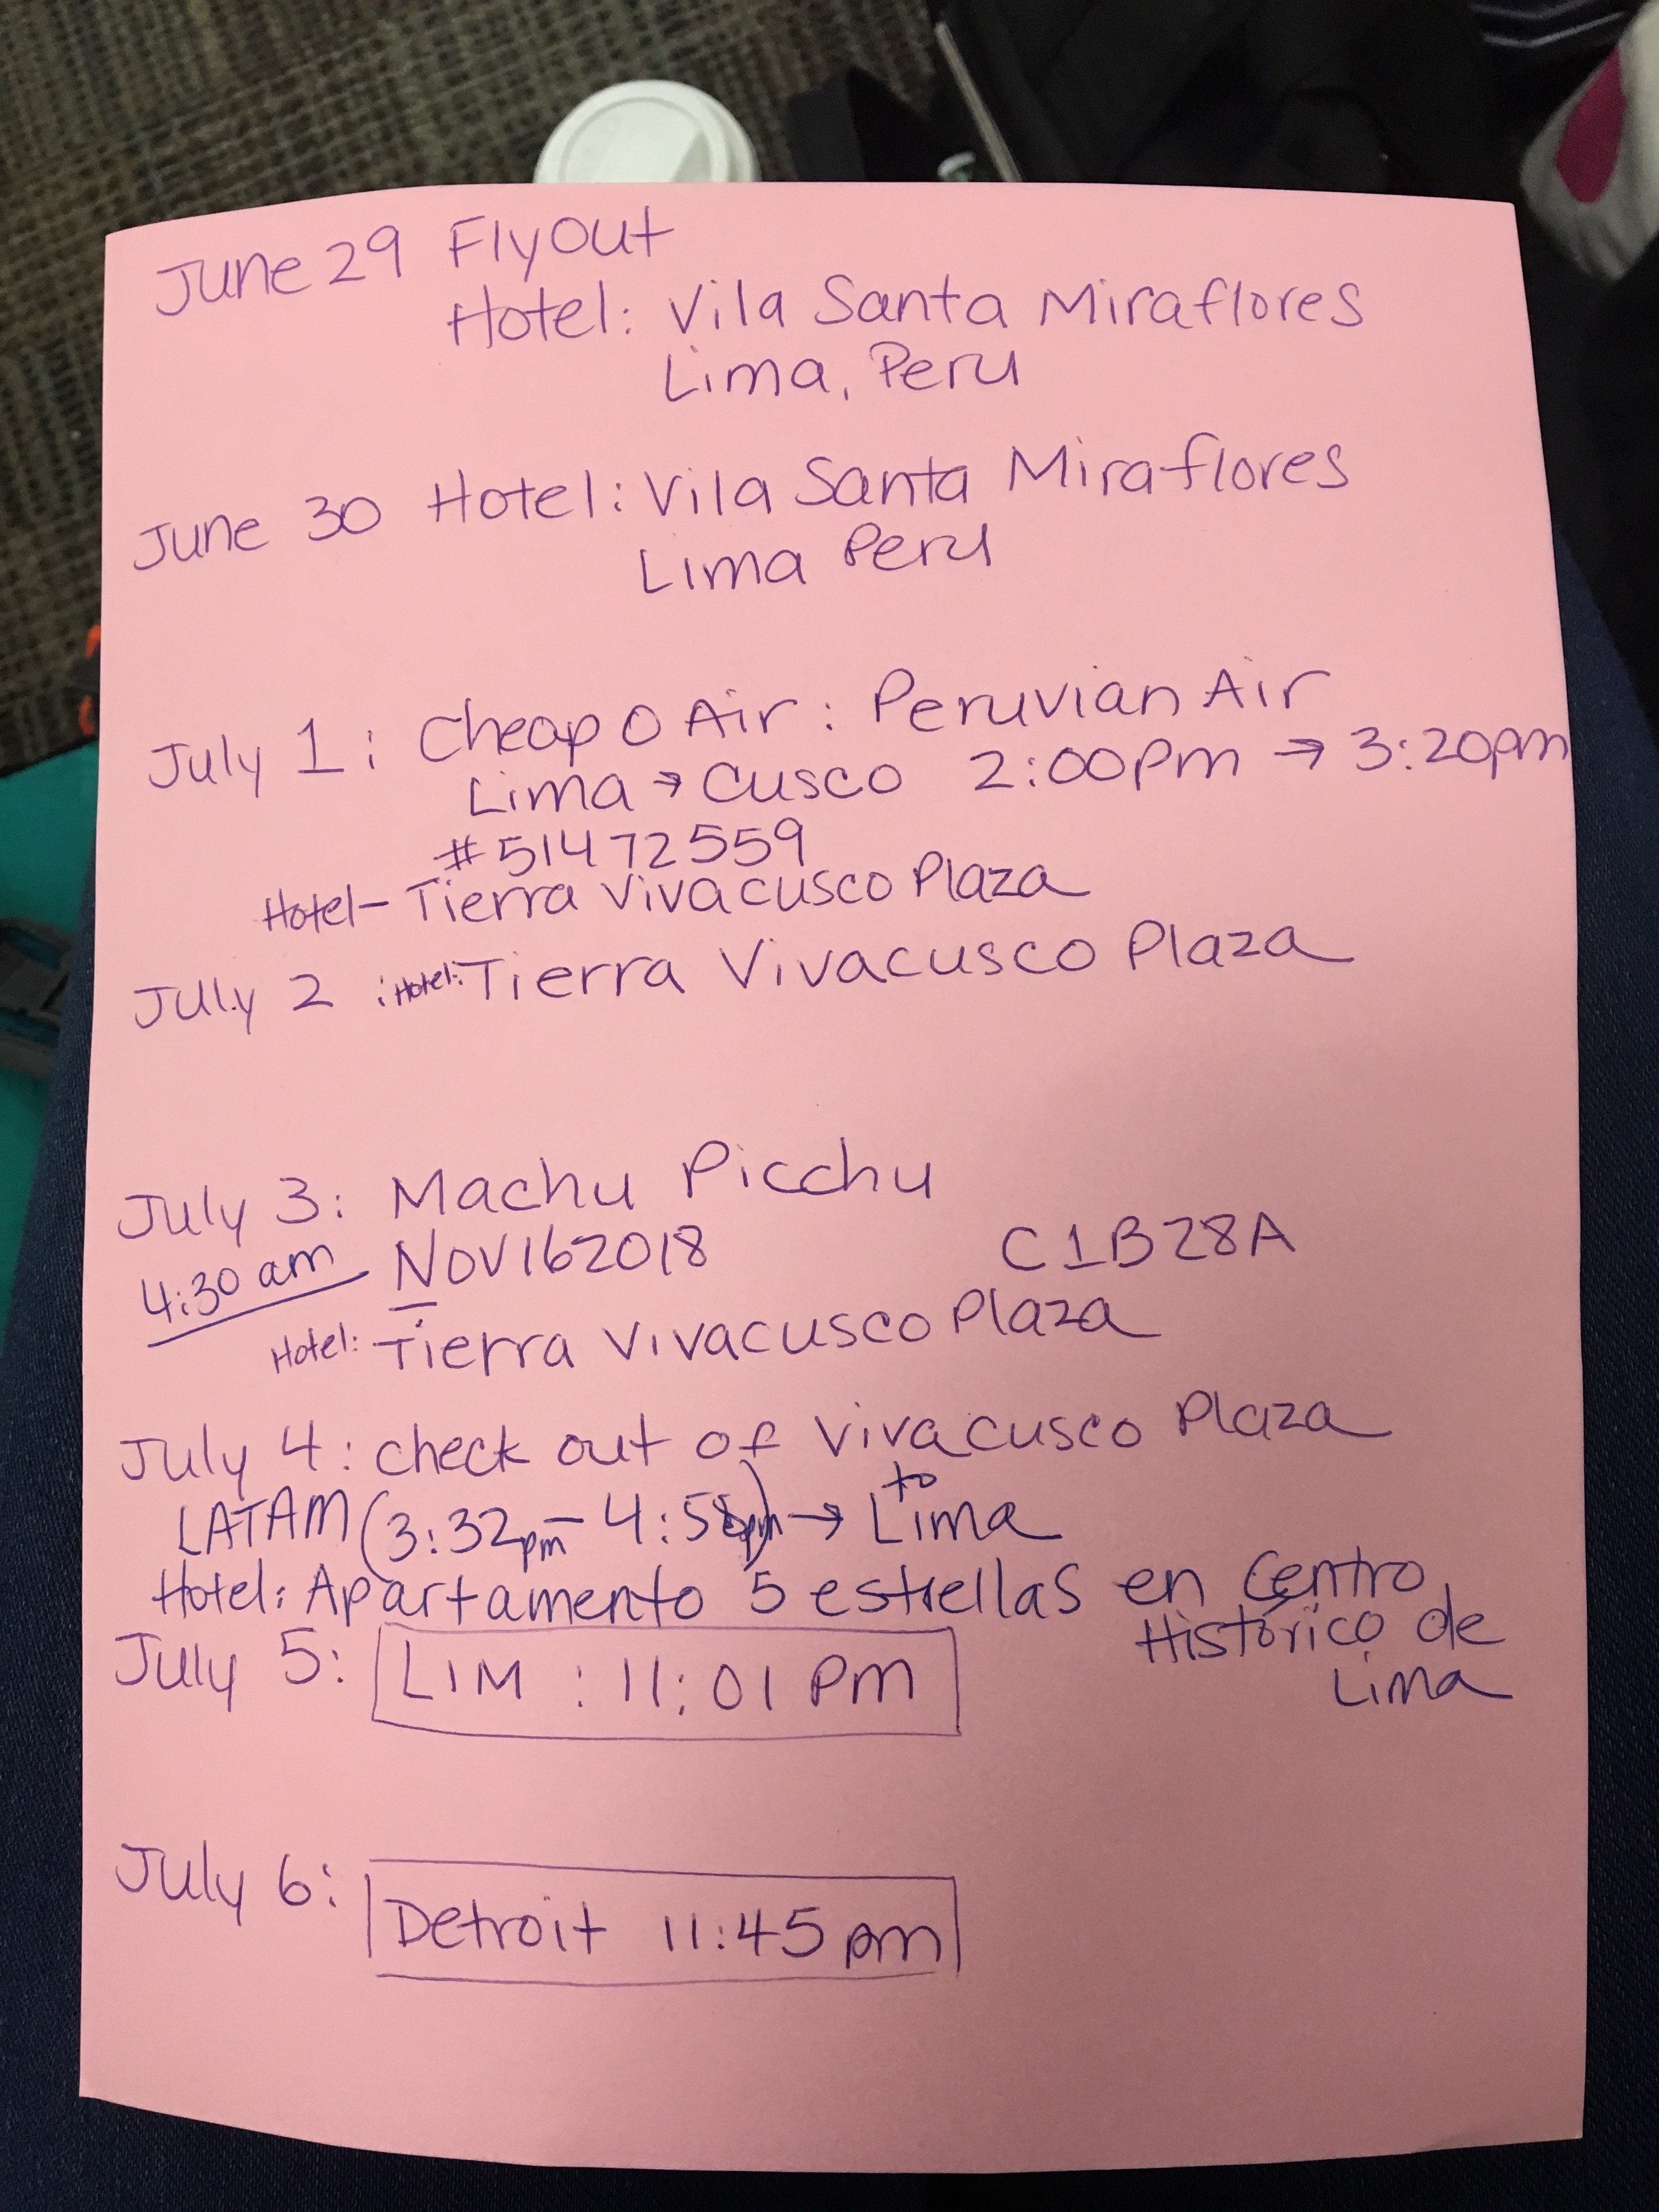 June 29 Flyout
Hotel: Vila Santa Miraflores
Lima, Peru
June 30 Hotel: Vila Santa Miraflores
Lima Peru
July 1: Cheap O Air: Peruvian Air
Lima → Cusco 2:00pm → 3:20pm
#51472559
Hotel- Tierra Vivacusco Plaza
July 2: Hotel: Tierra Vivacusco Plaza
July 3: Machu Picchu
4:30 am Nov162018 C1B28A
Hotel: Tierra Vivacusco Plaza
July 4: check out of Vivacusco Plaza
LATAM (3:32pm - pm) → to Lima
Hotel: Apartamento 5 estrellas en Centro
Histórico de
Lima
July 5: LIM : 11:01 pm
July 6: Detroit 11:45 pm